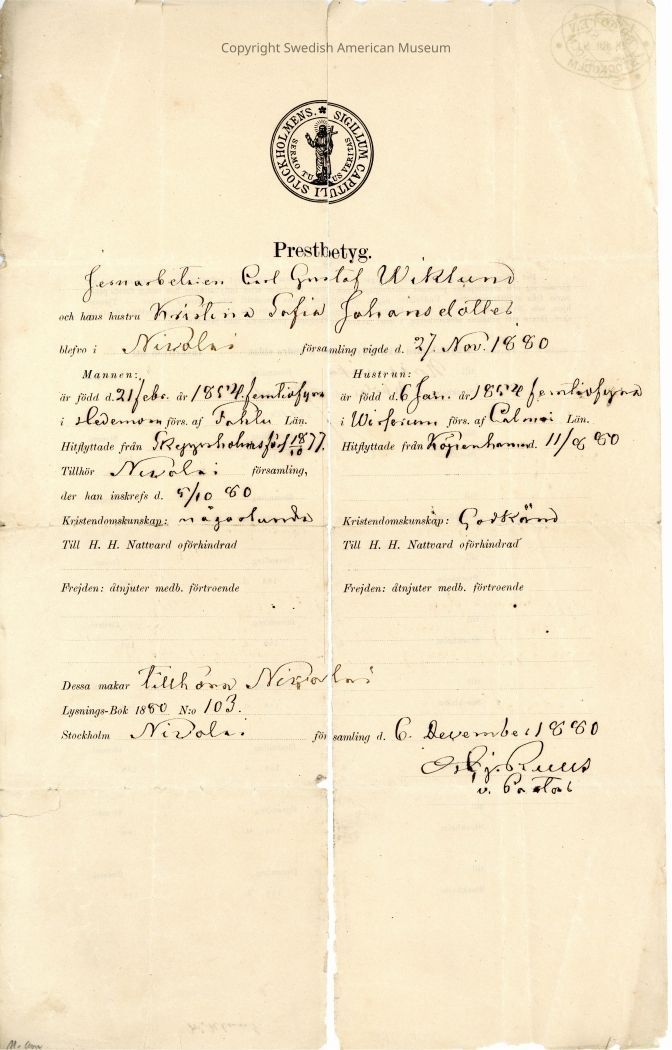 Copyright Swedish American Museum
SIGILLUM CAPITULI STOCKHOLMENS.
SERMO TUUS VERITAS
Prestbetyg.
Jernarbetaren Carl Gustaf Wiklund
och hans hustru Kristina Sofia Johansdotter
blefvo i Nicolai församling vigde d. 27. Nov. 1880
Mannen:
är född d. 21 febr. år 1854 femtiofyra
i Hedemora förs. af Fahlu Län.
Hitflyttade från Skeppsholms förs 18/10 77.
Tillhör Nicolai församling,
der han inskrefs d. 5/10 80
Kristendomskunskap: någorlunda
Till H. H. Nattvard oförhindrad
Frejden: åtnjuter medb. förtroende
Hustrun:
är född d. 6 Jan. år 1854 femtiofyra
i Wisserum förs. af Calmar Län.
Hitflyttade från Köpenhamn d. 11/8 80
Kristendomskunskap: Godkänd
Till H. H. Nattvard oförhindrad
Frejden: åtnjuter medb. förtroende
Dessa makar tillhöra Nicolai
Lysnings-Bok 1880 N:o 103.
Stockholm Nicolai församling d. 6 December 1880
v. Pastor